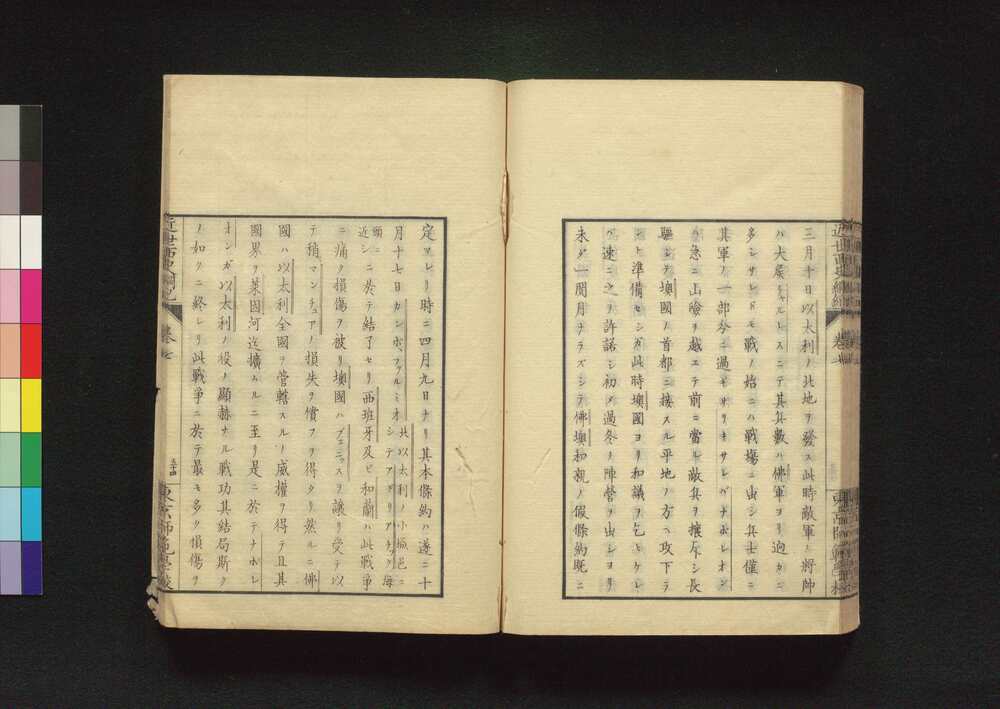 三月十日以太利ノ北地ヲ發ス此時敵軍ノ將帥
ハ大麾シャルトスニテ其兵數ハ佛軍ヨリ逈カニ
多シサレドモ戰ノ始ニハ戰塲ニ出シ兵士僅ニ
其軍ノ一部分ニ過ギザリキサレバナポレオン
ハ急ニ山嶮ヲ越エテ前ニ當ル敵兵ヲ擴斥シ長
驅シテ墺國ノ首都ニ接スル平地ノ方ヘ攻下ラ
ント準備セシガ此時墺國ヨリ和議ヲ乞ヒケレ
バ速ニ之ヲ許諾シ初メ過冬ノ陣營ヲ出シヨリ
未ダ一閲月ナラズシテ佛墺和親ノ假條約既ニ
定マレリ時ニ四月九日ナリ其本條約ハ遂ニ十
月十七日カンポ、ファルミオ北以太利ノ小城邑ニシテアドリアチック海頭ニ近シニ於テ結了セリ西班牙及ビ和蘭ハ此戰爭
ニ痛ク損傷ヲ被リ墺國ハブェニッスヲ讓リ受テ以
テ稍マンチュアノ損失ヲ償フヲ得タリ然ルニ佛
國ハ以太利全國ヲ管轄スルノ威權ヲ得テ且其
國界ヲ萊因河迄擴ムルニ至リ是ニ於テナポレ
オンガ以太利ノ役ノ顯赫ナル戰功其結局斯ク
ノ如クニ終レリ此戰爭ニ於テ最モ多ク損傷ヲ
近世西史綱紀
卷七
五十四
東京師範學校